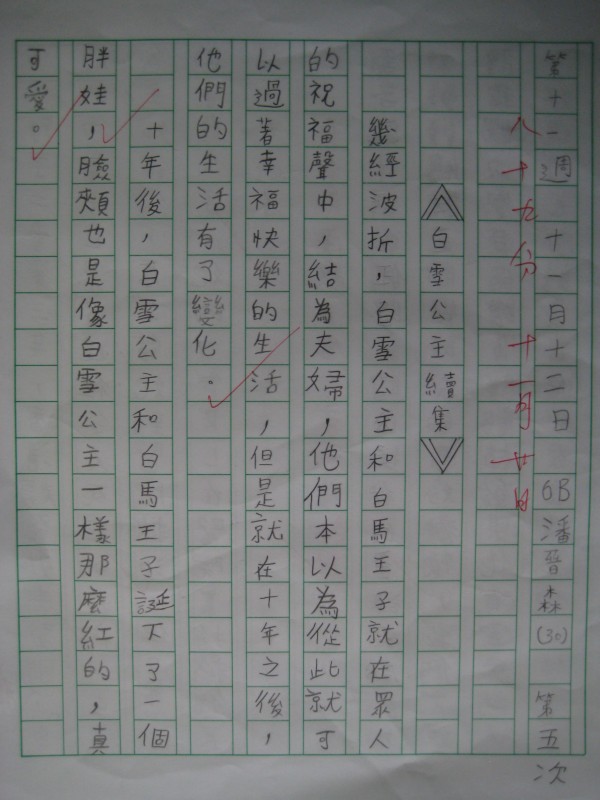 第十一週 十一月十二日 6B 潘晉森 (30) 第五次
八十九分 十一月廿日
《白雪公主續集》
幾經波折，白雪公主和白馬王子就在眾人
的祝福聲中，結為夫婦，他們本以為從此就可
以過著幸福快樂的生活，但是就在十年之後，
他們的生活有了變化。
十年後，白雪公主和白馬王子誕下了一個
胖娃，臉頰也是像白雪公主一樣那麼紅的，真
可愛。